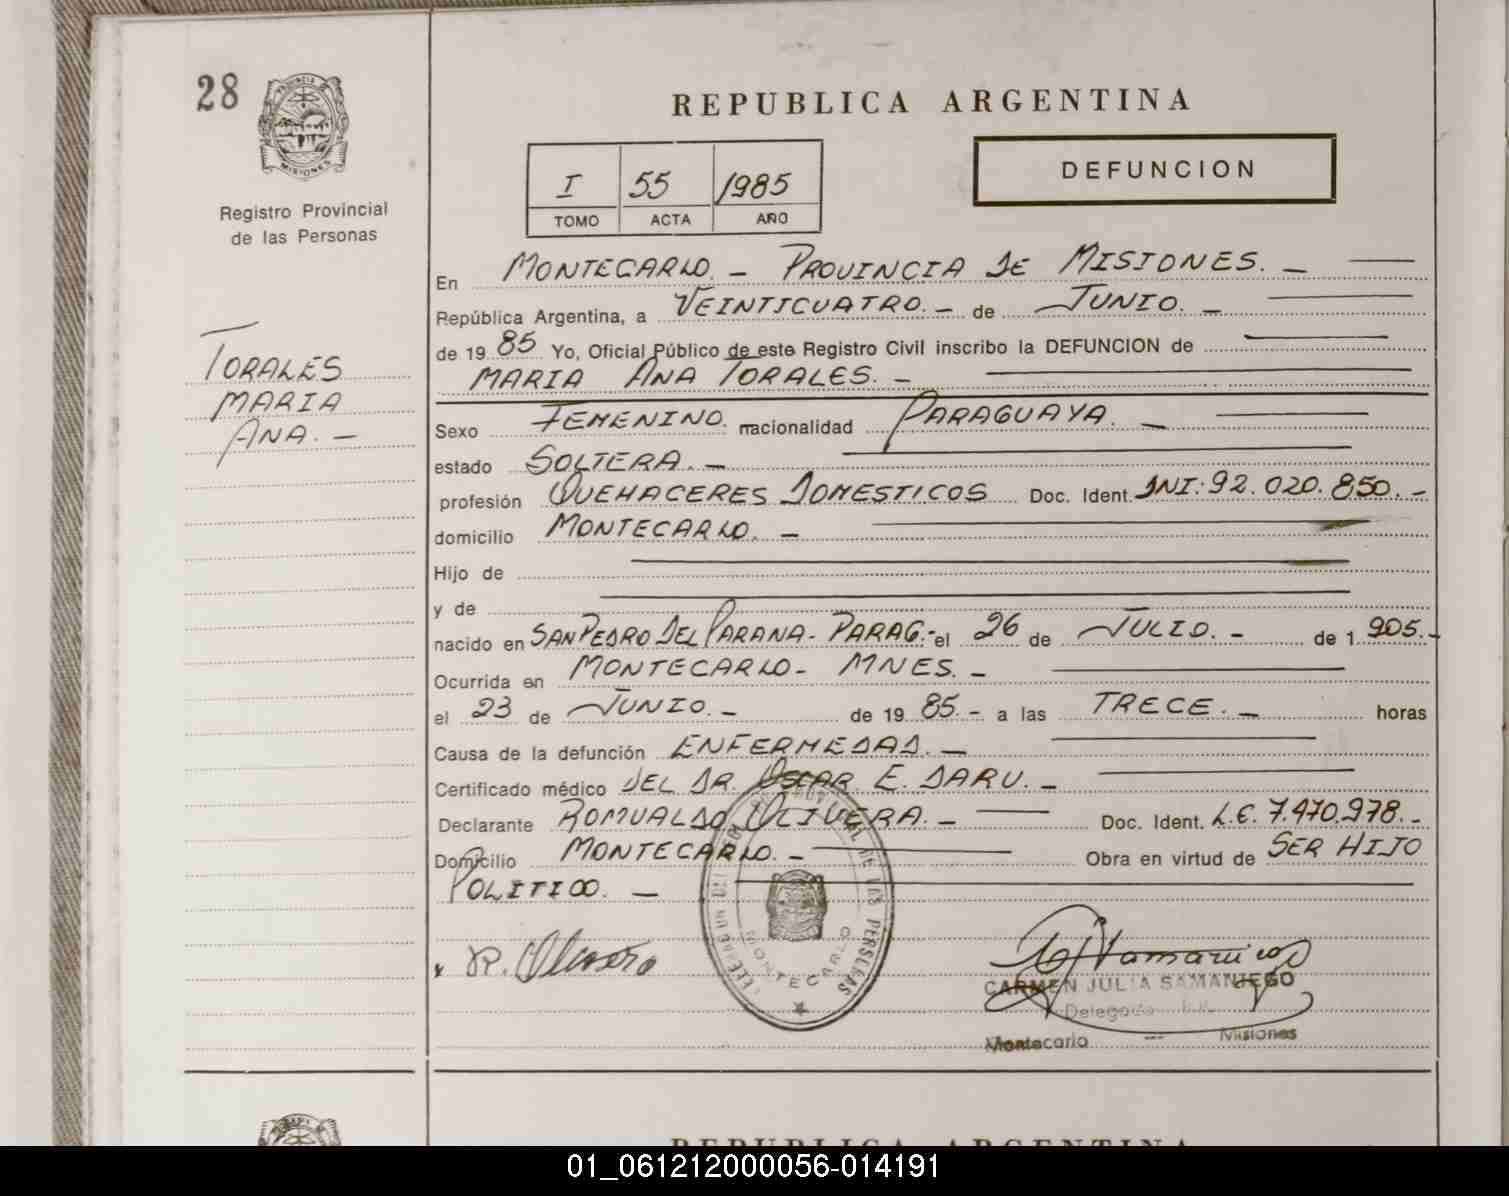 28
PROVINCIA DE
MISIONES
Registro Provincial
de las Personas
REPUBLICA ARGENTINA
I 55 1985
TOMO ACTA AÑO
DEFUNCION
TORALES
MARIA
ANA. —
En MONTECARLO. — PROVINCIA DE MISIONES. —
República Argentina, a VEINTICUATRO. — de JUNIO. —
de 19 85 Yo, Oficial Público de este Registro Civil inscribo la DEFUNCION de
MARIA ANA TORALES. —
Sexo FEMENINO. nacionalidad PARAGUAYA. —
estado SOLTERA. —
profesión QUEHACERES DOMESTICOS Doc. Ident. DNI: 92.020.850. —
domicilio MONTECARLO. —
Hijo de
y de
nacido en SAN PEDRO DEL PARANA - PARAG. - el 26 de JULIO. — de 1 905. -
Ocurrida en MONTECARLO - MNES. —
el 23 de JUNIO. — de 19 85. - a las TRECE. — horas
Causa de la defunción ENFERMEDAD. —
Certificado médico DEL DR. OSCAR E. DARU. —
Declarante ROMUALDO OLIVERA. — Doc. Ident. L.E. 7.470.978. -
Domicilio MONTECARLO. — Obra en virtud de SER HIJO
POLITICO. —
R. Olivera
DE LAS PERSONAS
MONTECARLO
CARMEN JULIA SAMANIEGO
Delegada
Montecarlo — Misiones
REPUBLICA ARGENTINA
01_061212000056-014191